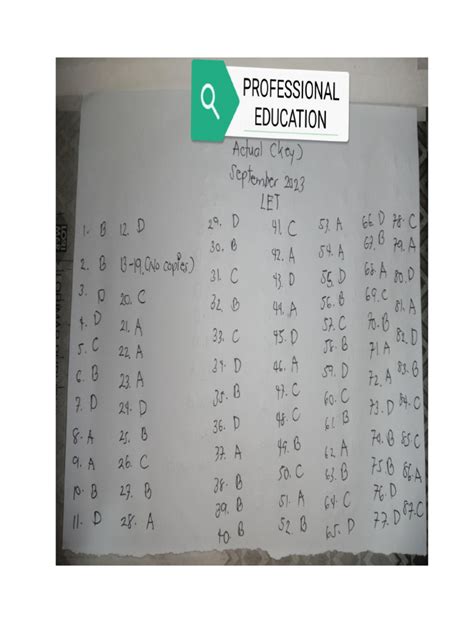 PROFESSIONAL
EDUCATION
Actual (key)
September 2023
LET
1. B
2. B
3. D
4. D
5. C
6. B
7. D
8. A
9. A
10. B
11. D
12. D
13-19. (No copies)
20. C
21. A
22. A
23. A
24. D
25. B
26. C
27. B
28. A
29. D
30. B
31. C
32. B
33. C
34. D
35. B
36. D
37. A
38. B
39. B
40. B
41. C
42. A
43. D
44. A
45. D
46. A
47. C
48. C
49. B
50. C
51. A
52. B
53. A
54. A
55. D
56. B
57. C
58. B
59. D
60. C
61. B
62. A
63. B
64. C
65. D
66. D
67. B
68. A
69. C
70. B
71. A
72. A
73. D
74. B
75. B
76. D
77. D
78. C
79. A
80. D
81. A
82. D
83. B
84. C
85. C
86. A
87. C